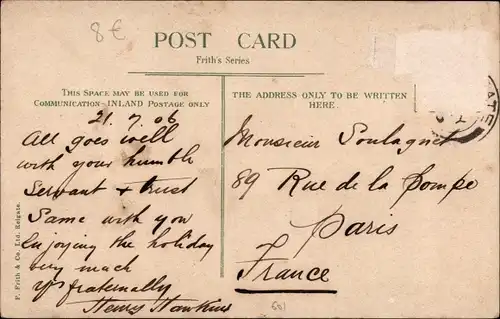 8 €
POST CARD
Frith's Series
THIS SPACE MAY BE USED FOR
COMMUNICATION—INLAND POSTAGE ONLY
THE ADDRESS ONLY TO BE WRITTEN
HERE.
21.7.06
All goes well
with your humble
servant & trust
same with you
Enjoying the holiday
very much
Yrs fraternally
Henry Hawkins
Monsieur Soulagnet
89 Rue de la Pompe
Paris
France
F. Frith & Co. Ltd. Reigate.